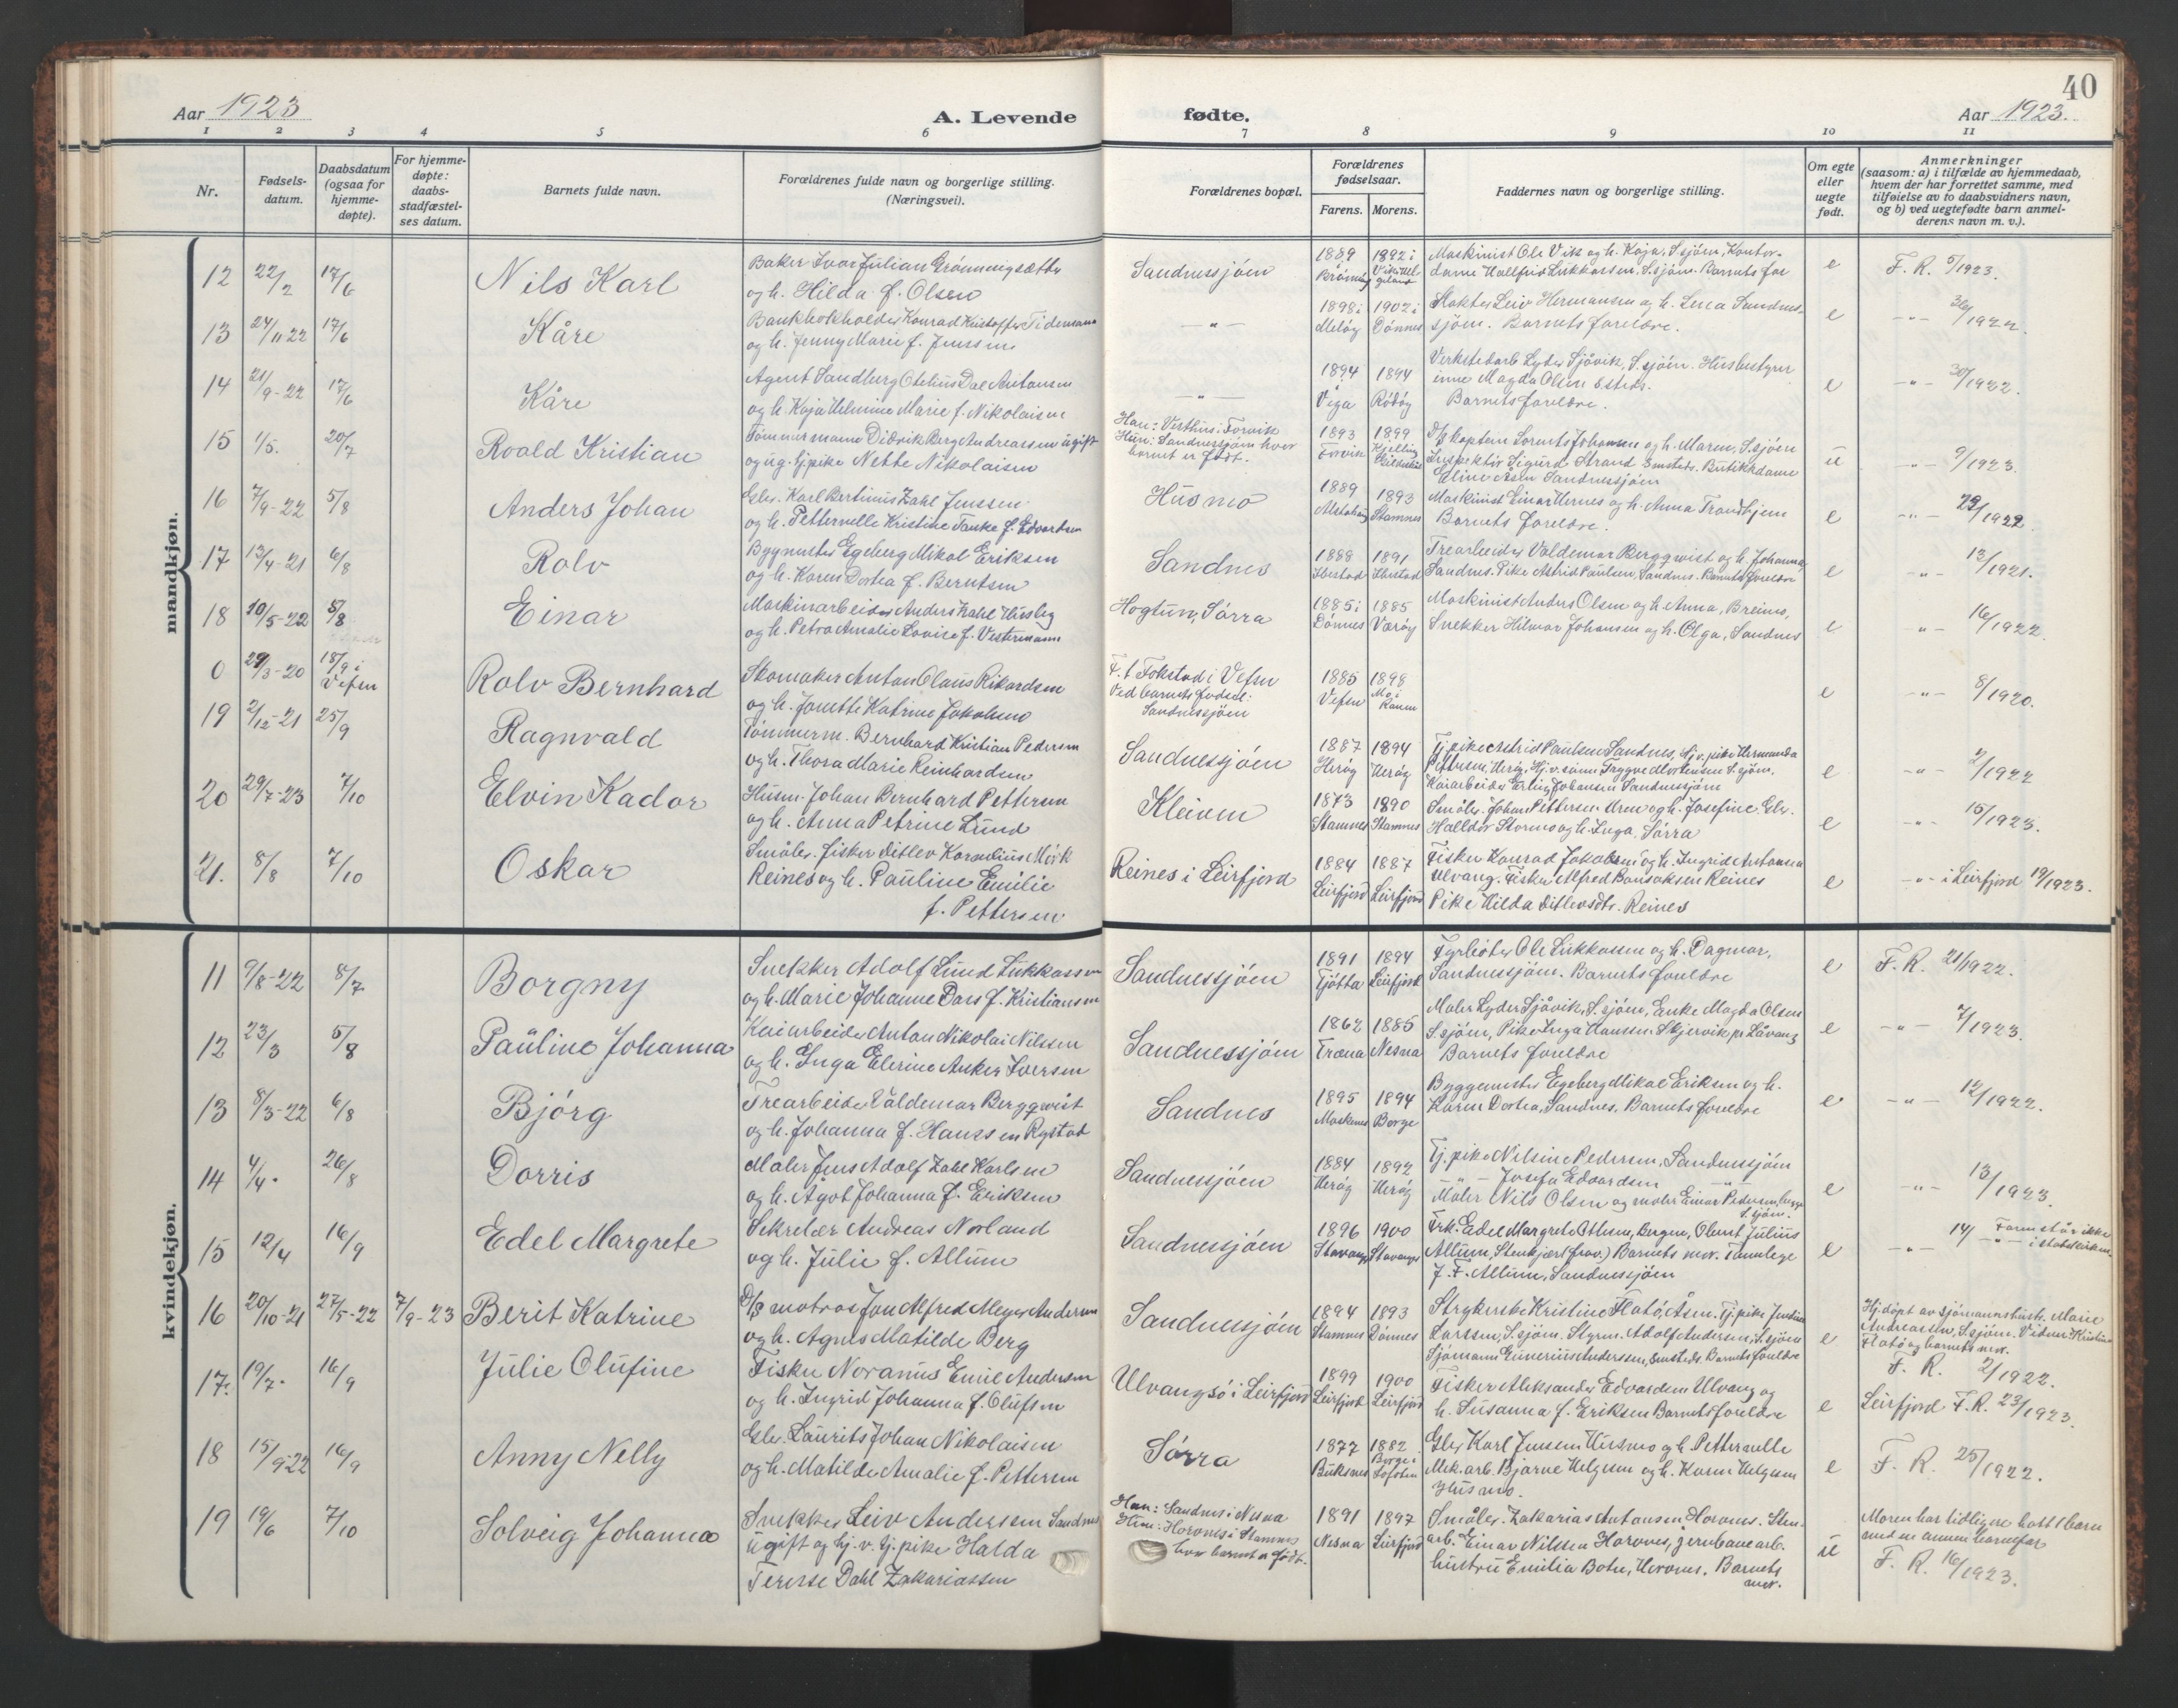 40
Aar 1923
A. Levende fødte.
Aar 1923.
1 2 3 4 5 6 7 8 9 10 11
Nr.
Fødsels-
datum.
Daabsdatum
(ogsaa for
hjemme-
døpte).
For hjemme-
døpte:
daabs-
stadfæstel-
ses datum.
Barnets fulde navn.
Forældrenes fulde navn og borgerlige stilling.
(Næringsvei).
Forældrenes bopæl.
Forældrenes
fødselsaar.
Farens. Morens.
Faddernes navn og borgerlige stilling.
Om egte
eller
uegte
født.
Anmerkninger
(saasom: a) i tilfælde av hjemmedaab,
hvem der har forrettet samme, med
tilføielse av to daabsvidners navn,
og b) ved uegtefødte barn anmel-
derens navn m. v.).
mandkjøn.
12 22/2 17/6 Nils Karl
Baker Ivar Julian Grönningsæter
og h. Hilda f. Olsen
Sandnessjöen
1889 Brönnöy 1892 i
Maskinist Ole Vik og h. Kaja, S.sjöen, Kontor-
dame Hallfrid Lukkassen, S.sjöen. Barnets for
e F. R. 5/1923.
13 24/11 22 17/6 Kåre
Bankbokholder Konrad Kristoffer Tidemann
og h. Jenny Marie f. Jenssen
-"-
1898 i Melöy 1902 i Dönnes
Slakter Leiv Hermansen og h. Lena Sandnes-
sjöen. Barnets foreldre.
e -"- 36/1922.
14 21/9-22 17/6 Kåre
Agent Sandberg Otelius Dal Antonsen
og h. Kaja Helmine Marie f. Nikolaisen
-"-
1894 Vega 1894 Rödöy
Verkstedarb. Lyder Sjövik, S.sjöen. Husbestyrer
inne Magda Olsen Ssteds.
Barnets foreldre.
e -"- 30/1922.
15 1/5. 20/7 Roald Kristian
Tömmermann Didrik Berg Andreassen ugift
og ug. tj.pike Nette Nikolaisen
Han: Vesthus: Forvik
Hun: Sandnessjöen hvor
barnet er födt.
1893 Forvik 1899
D/S kaptein Lorents Johansen og h. Maren, S.sjöen
Inspektör Sigurd Strand Smsteds. Butikkdame
Eline Åsen Sandnessjöen
u -"- 9/1923.
16 7/9-22 5/8 Anders Johan
Elev. Karl Bertinus Zahl Jenssen
og h. Petternelle Kristine Tanke f. Edvardsen
Husmo
1889 Alstahaug 1893 Stamnes
Maskinist Einar Hernes og h. Anna Trondhjem
Barnets foreldre.
e -"- 29/1922
17 13/4-21 6/8 Rolv
Bygmester Egeberg Mikal Eriksen
og h. Karen Dortea f. Berntsen
Sandnes
1888 Ibestad 1891 Ibestad
Trearbeider Valdemar Bergqwist og h. Johanna,
Sandnes. Pike Astrid Paulsen, Sandnes. Barnets foreldre
e -"- 13/1921.
18 10/5-22 5/8 Einar
Maskinarbeider Anders Zahl Husby
og h. Petra Amalie Lovise f. Vestermann
Hogtun, Sörra
1885 i Dönnes 1885 Væröy
Maskinist Anders Olsen og h. Anna, Breimo,
Snekker Hilmar Johansen og h. Olga, Sandnes
e -"- 16/1922.
0 29/3-20 18/9 i Vefsn Rolv Bernhard
Skomaker Anton Olaus Rikardsen
og h. Janette Katrine Jakobsen
F. t. Fokstad i Vefsn
Ved barnets födsel:
Sandnessjöen
1885 Vefsn 1898 Mo i Ranen
e -"- 8/1920.
19 2/12-21 25/9 Ragnvald
Tömmerm. Bernhard Kristian Pedersen
og h. Thora Marie Reinhardsen
Sandnessjöen
1887 Heröy 1894 Heröy
Tj.pike Astrid Paulsen Sandnes, tj.v. pike Hermanda
Pettersen, Heröy, Hj.v. sönn Trygve Mortensen S.sjöen,
Kaiarbeider Erling Johansen Sandnessjöen
e -"- 2/1922
20 29/7-23 7/10 Elvin Kador
Husm. Johan Bernhard Pettersen
og h. Anna Petrine Lund
Kleiven
1873 Stamnes 1890 Stamnes
Småbr. Johan Pettersen Moen og h. Josefine. Elv.
Halldor Stormo og h. Inga, Sörra
e -"- 15/1923.
21. 8/8 7/10 Oskar
Småbr. fisker Ditlev Kornelius Mörk
Reines og h. Pauline Emilie
f. Pettersen
Reines i Leirfjord
1884 Leirfjord 1887 Leirfjord
Fisker Konrad Jakobsen og h. Ingrid Antonsen
Ulvang. Fisker Alfred Reines
Pike Hilda Ditlevsdtr. Reines
e -"- i Leirfjord 19/1923.
kvindekjøn.
11 9/8-22 8/7 Borgny
Snekker Adolf Lund Lukkassen
og h. Marie Johanne Dass f. Kristiansen
Sandnessjöen
1891 Tjötta 1894 Leirfjord
Fyrböter Ole Lukkassen og h. Dagmar,
Sandnessjöen. Barnets foreldre
e F. R. 21/1922.
12 23/3 5/8 Pauline Johanna
Kaiarbeider Anton Nikolai Nilssen
og h. Inga Elerine Anker Iversen
Sandnessjöen
1862 Træna 1885 Nesna
Maler Lyder Sjövik, S.sjöen, Enke Magda Olsen
S.sjöen, Pike Inga Hanssen Skjervik pr Låvong
Barnets foreldre
e -"- 7/1923.
13 8/3-22 6/8 Björg
Trearbeider Valdemar Bergqwist
og h. Johanna f. Hanssen Rystad
Sandnes
1895 Moskenes 1894 Borge
Byggemester Egeberg Mikal Eriksen og h.
Karen Dortea, Sandnes. Barnets foreldre
e -"- 12/1922.
14 4/4. 26/8 Dorris
Maler Jens Adolf Zahl Karlsen
og h. Ågot Johanna f. Eriksen
Sandnessjöen
1884 Heröy 1892 Heröy
Tj.pike Nilsine Pedersen, Sandnessjöen
-"- Josefa Edvardsen -"-
Maler Nils Olsen og maler Einar Pedersen, begge
S.sjöen.
e -"- 13/1923.
15 12/4 16/9 Edel Margrete
Sekretær Andreas Norland
og h. Julie f. Allum
Sandnessjöen
1896 Stavanger 1900 Stavanger
Frk. Edel Margrete Ottesen, Bergen, Oberst Julius
Allum, Stenkjær (frav.) Barnets mor. Tannlege
J. F. Allum, Sandnessjöen
e -"- 14/ Faren står ikke
-"- i statskirken.
16 20/10-21 27/5-22 7/9-23 Berit Katrine
D/S matros Jon Alfred Meyer Andersen
og h. Agnes Matilde Berg
Sandnessjöen
1894 Stamnes 1893 Dönnes
Strykerske Kristine Flatö, Åsen. Tj.pike Justine
Larssen, S.sjöen. Styrm. Adolf Andersen, S.sjöen
Sjömann Einerius Anderssen, Smsteds. Barnets foreldre
e
Hj.döpt av sjömannshustr. Marie
Andreassen, S.sjöen. Vidner: Kristine
Flatö og barnets mor.
F. R. 2/1922.
17. 19/7. 16/9 Julie Olufine
Fisker Noranus Emil Andersen
og h. Ingrid Johanna f. Olufsen
Ulvangsö i Leirfjord
1899 Leirfjord 1900 Leirfjord
Fisker Aleksander Edvardsen Ulvang og
h. Susanna f. Eriksen Barnets foreldre
e Leirfjord F. R. 23/1923.
18 15/9-22 16/9 Anny Nelly
Elev. Laurits Johan Nikolaisen
og h. Matilde Amalie f. Pettersen
Sörra
1877 Buksnes 1882 Borge i Lofoten
Elev Karl Jensen Husmo og h. Petternelle
Mek.arb. Bjarne Helgesen og h. Karen Helgesen
Husmo.
e F. R. 25/1922.
19 19/6 7/10 Solveig Johanna
Snekker Leiv Andersen Sandnes
ugift og hj.v. tj.pike Halda
Terese Dahl Zakariassen
Han: Sandnes i Nesna
Hun: Horvnes i Stamnes
hvor barnet er födt.
1891 Nesna 1897 Leirfjord
Småbr. Zakarias Antonsen Horvnes. Sten-
arb. Einar Nilssen Horvnes, jernbanearb.
hustru Emilia Botn, Horvnes. Barnets
mor.
u
Moren har tidligere hatt barn
med en annen barnefar
F. R. 16/1923.